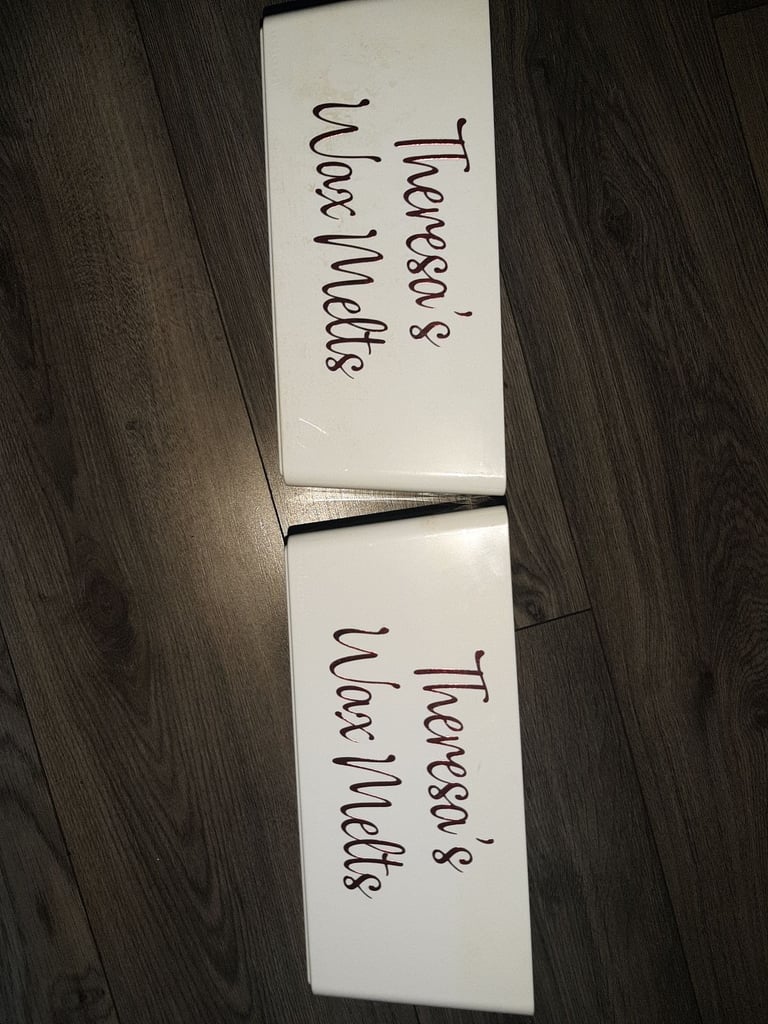 Theresa's
Wax Melts
Theresa's
Wax Melts